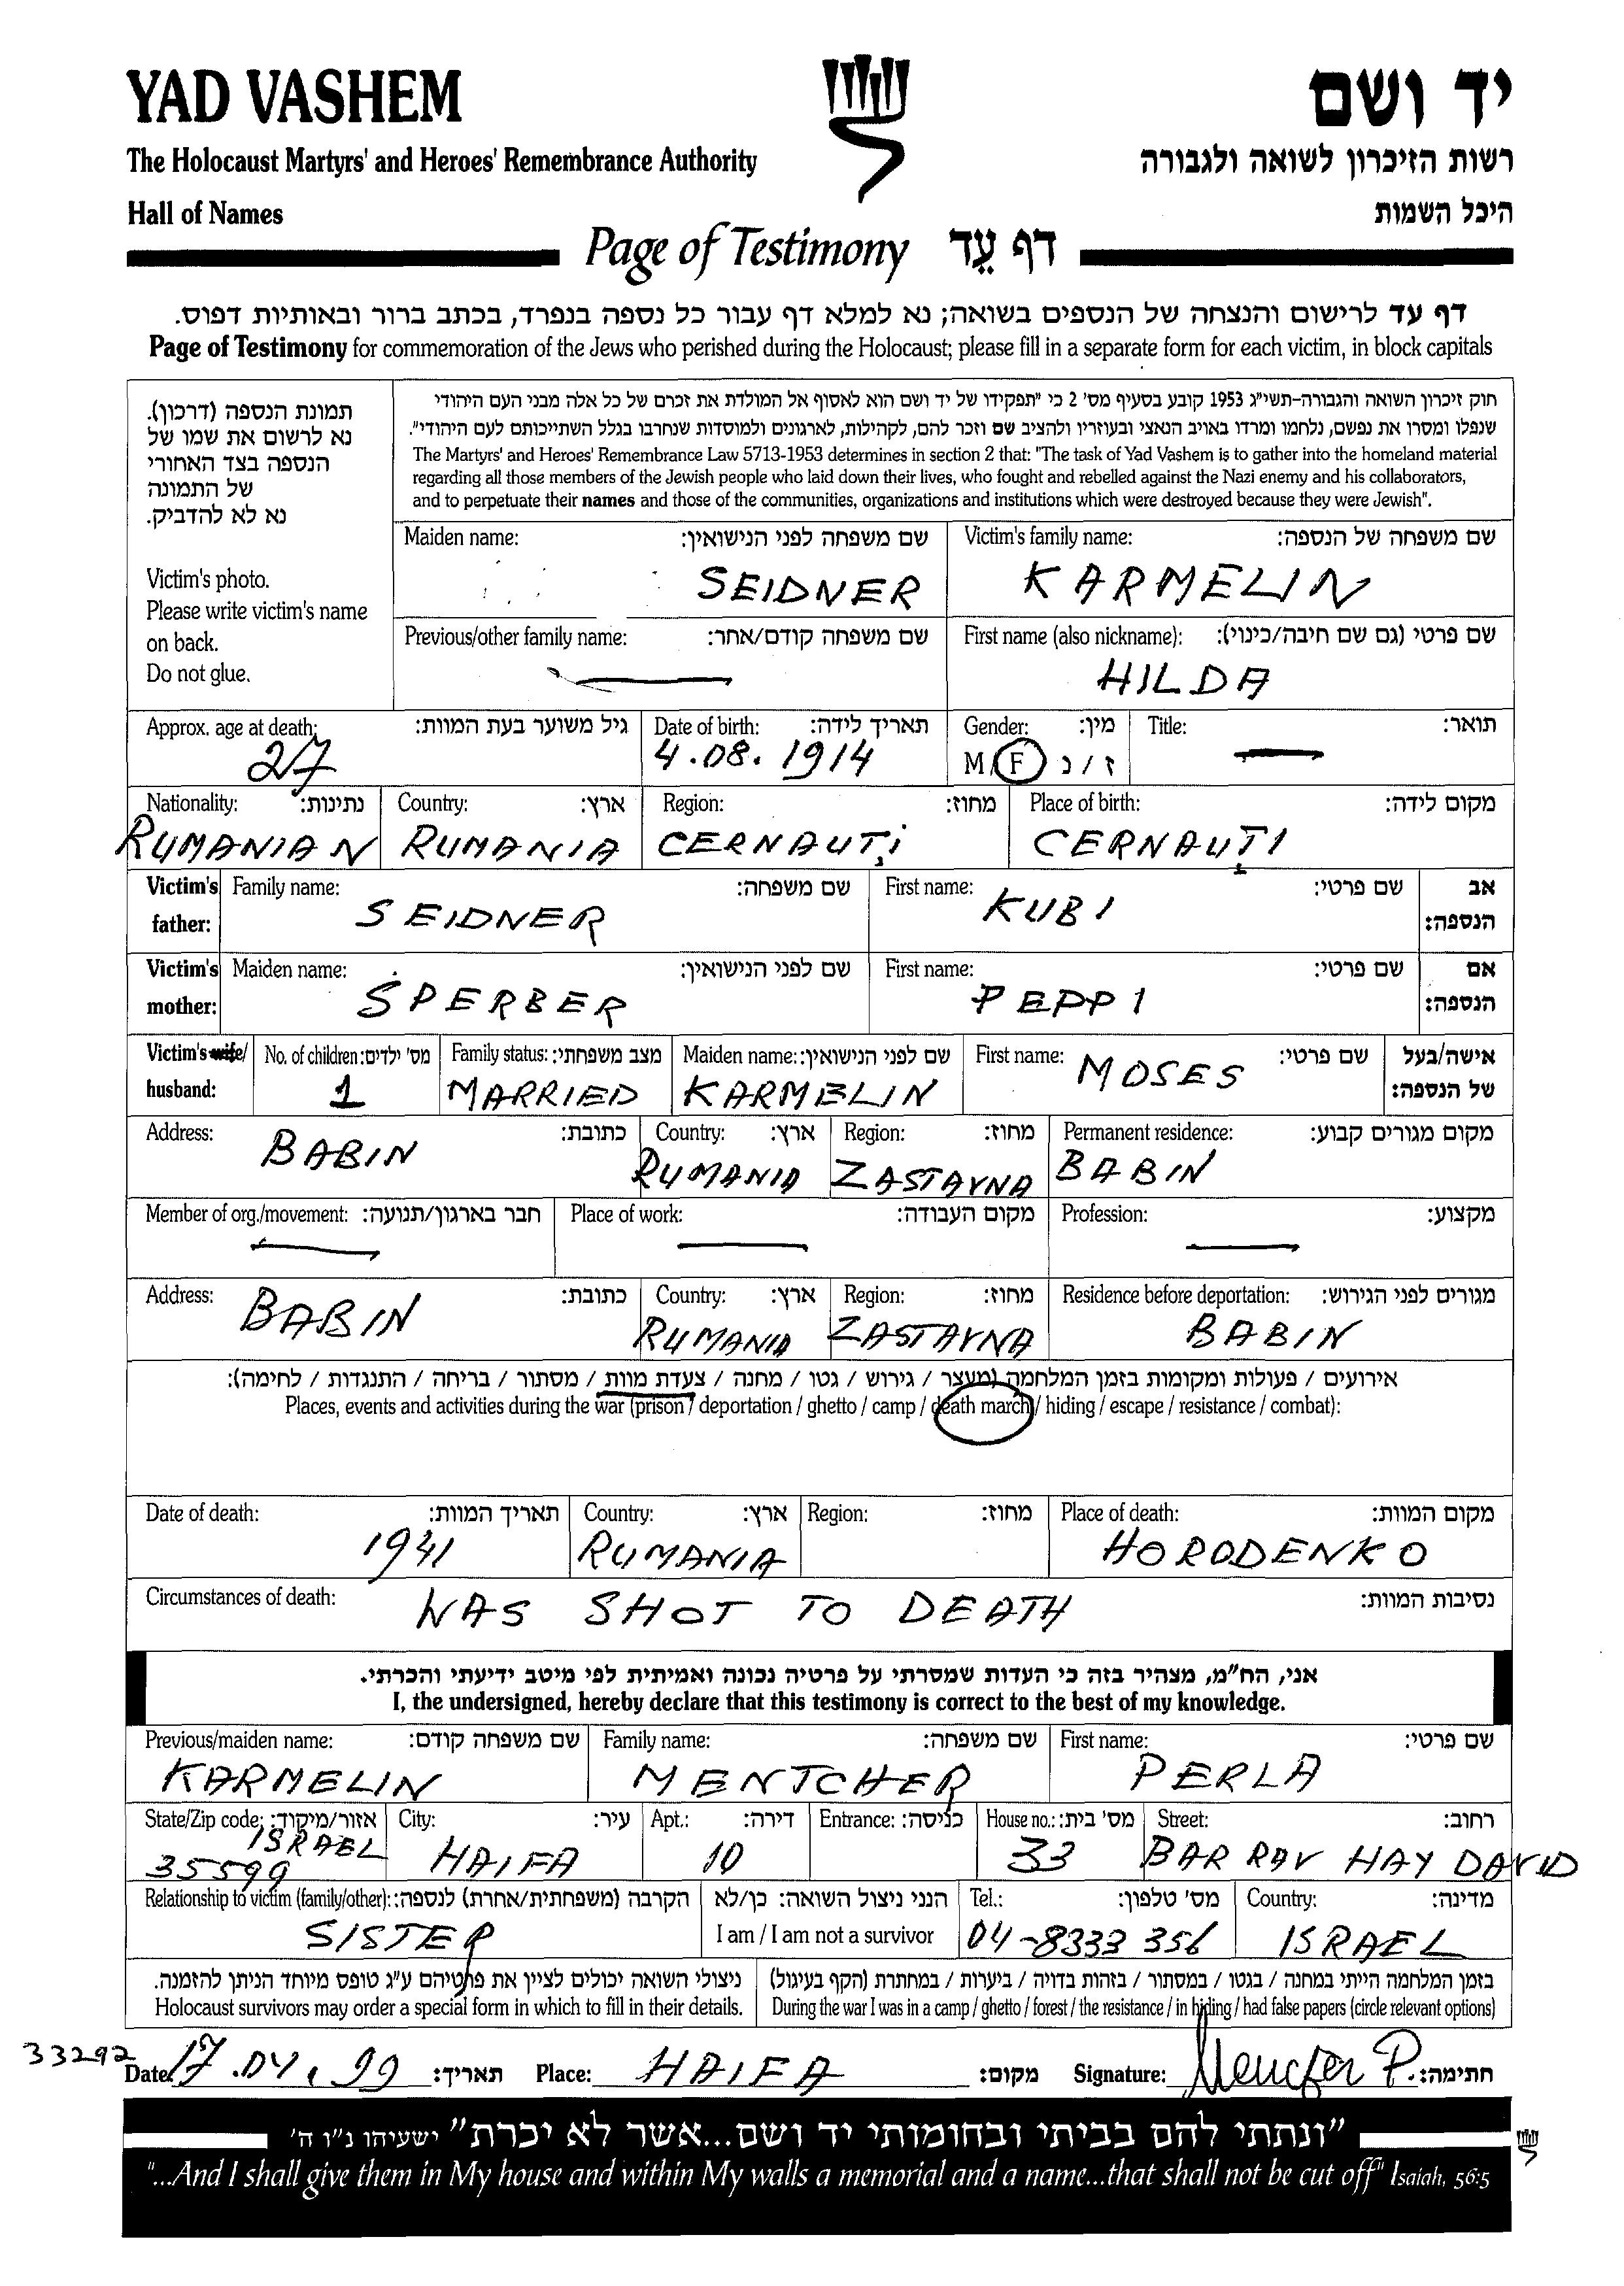 YAD VASHEM
The Holocaust Martyrs' and Heroes' Remembrance Authority
Hall of Names
יד ושם
רשות הזיכרון לשואה ולגבורה
היכל השמות
Page of Testimony דף עֵד
דף עד לרישום והנצחה של הנספים בשואה; נא למלא דף עבור כל נספה בנפרד, בכתב ברור ובאותיות דפוס.
Page of Testimony for commemoration of the Jews who perished during the Holocaust; please fill in a separate form for each victim, in block capitals
תמונת הנספה (דרכון).
נא לרשום את שמו של
הנספה בצד האחורי
של התמונה
נא לא להדביק.
Victim's photo.
Please write victim's name
on back.
Do not glue.
חוק זיכרון השואה והגבורה-תשי"ג 1953 קובע בסעיף מס' 2 כי "תפקידו של יד ושם הוא לאסוף אל המולדת את זכרם של כל אלה מבני העם היהודי
שנפלו ומסרו את נפשם, נלחמו ומרדו באויב הנאצי ובעוזריו ולהציב שם וזכר להם, לקהילות, לארגונים ולמוסדות שנחרבו בגלל השתייכותם לעם היהודי".
The Martyrs' and Heroes' Remembrance Law 5713-1953 determines in section 2 that: "The task of Yad Vashem is to gather into the homeland material
regarding all those members of the Jewish people who laid down their lives, who fought and rebelled against the Nazi enemy and his collaborators,
and to perpetuate their names and those of the communities, organizations and institutions which were destroyed because they were Jewish".
Maiden name: שם משפחה לפני הנישואין: Victim's family name: שם משפחה של הנספה:
SEIDNER KARMELIN
Previous/other family name: שם משפחה קודם/אחר: First name (also nickname): שם פרטי (גם שם חיבה/כינוי):
HILDA
Approx. age at death: גיל משוער בעת המוות: Date of birth: תאריך לידה: Gender: מין: Title: תואר:
27 4.08.1914 M/F ז/נ
Nationality: נתינות: Country: ארץ: Region: מחוז: Place of birth: מקום לידה:
RUMANIAN RUMANIA CERNAUŢi CERNAUŢI
Victim's father: Family name: שם משפחה: First name: שם פרטי: אב הנספה:
SEIDNER KUBI
Victim's mother: Maiden name: שם לפני הנישואין: First name: שם פרטי: אם הנספה:
SPERBER PEPPI
Victim's wife/ husband: No. of children: מס' ילדים: Family status: מצב משפחתי: Maiden name: שם לפני הנישואין: First name: שם פרטי: אישה/בעל של הנספה:
1 MARRIED KARMELIN MOSES
Address: כתובת: Country: ארץ: Region: מחוז: Permanent residence: מקום מגורים קבוע:
BABIN RUMANIA ZASTAYNA BABIN
Member of org./movement: חבר בארגון/תנועה: Place of work: מקום העבודה: Profession: מקצוע:
Address: כתובת: Country: ארץ: Region: מחוז: Residence before deportation: מגורים לפני הגירוש:
BABIN RUMANIA ZASTAYNA BABIN
אירועים / פעולות ומקומות בזמן המלחמה (מעצר / גירוש / גטו / מחנה / צעדת מוות / מסתור / בריחה / התנגדות / לחימה):
Places, events and activities during the war (prison / deportation / ghetto / camp / death march / hiding / escape / resistance / combat):
Date of death: תאריך המוות: Country: ארץ: Region: מחוז: Place of death: מקום המוות:
1941 RUMANIA HORODENKO
Circumstances of death: WAS SHOT TO DEATH נסיבות המוות:
אני, הח"מ, מצהיר בזה כי העדות שמסרתי על פרטיה נכונה ואמיתית לפי מיטב ידיעתי והכרתי.
I, the undersigned, hereby declare that this testimony is correct to the best of my knowledge.
Previous/maiden name: שם משפחה קודם: Family name: שם משפחה: First name: שם פרטי:
KARMELIN MENTCHER PERLA
State/Zip code: אזור/מיקוד: City: עיר: Apt.: דירה: Entrance: כניסה: House no.: מס' בית: Street: רחוב:
ISRAEL 35599 HAIFA 10 33 BAR RAV HAY DAVID
Relationship to victim (family/other): הקרבה (משפחתית/אחרת) לנספה: הנני ניצול השואה: כן/לא Tel.: מס' טלפון: Country: מדינה:
SISTER I am / I am not a survivor 04-8333 356 ISRAEL
ניצולי השואה יכולים לציין את פרטיהם ע"ג טופס מיוחד הניתן להזמנה. בזמן המלחמה הייתי במחנה / בגטו / במסתור / בזהות בדויה / ביערות / במחתרת (הקף בעיגול)
Holocaust survivors may order a special form in which to fill in their details. During the war I was in a camp / ghetto / forest / the resistance / in hiding / had false papers (circle relevant options)
33292
Date: 17.04.99 תאריך: Place: HAIFA מקום: Signature: Mencher P. חתימה:
"ונתתי להם בביתי ובחומותי יד ושם...אשר לא יכרת" ישעיהו נ"ו ה'
"...And I shall give them in My house and within My walls a memorial and a name...that shall not be cut off" Isaiah, 56:5